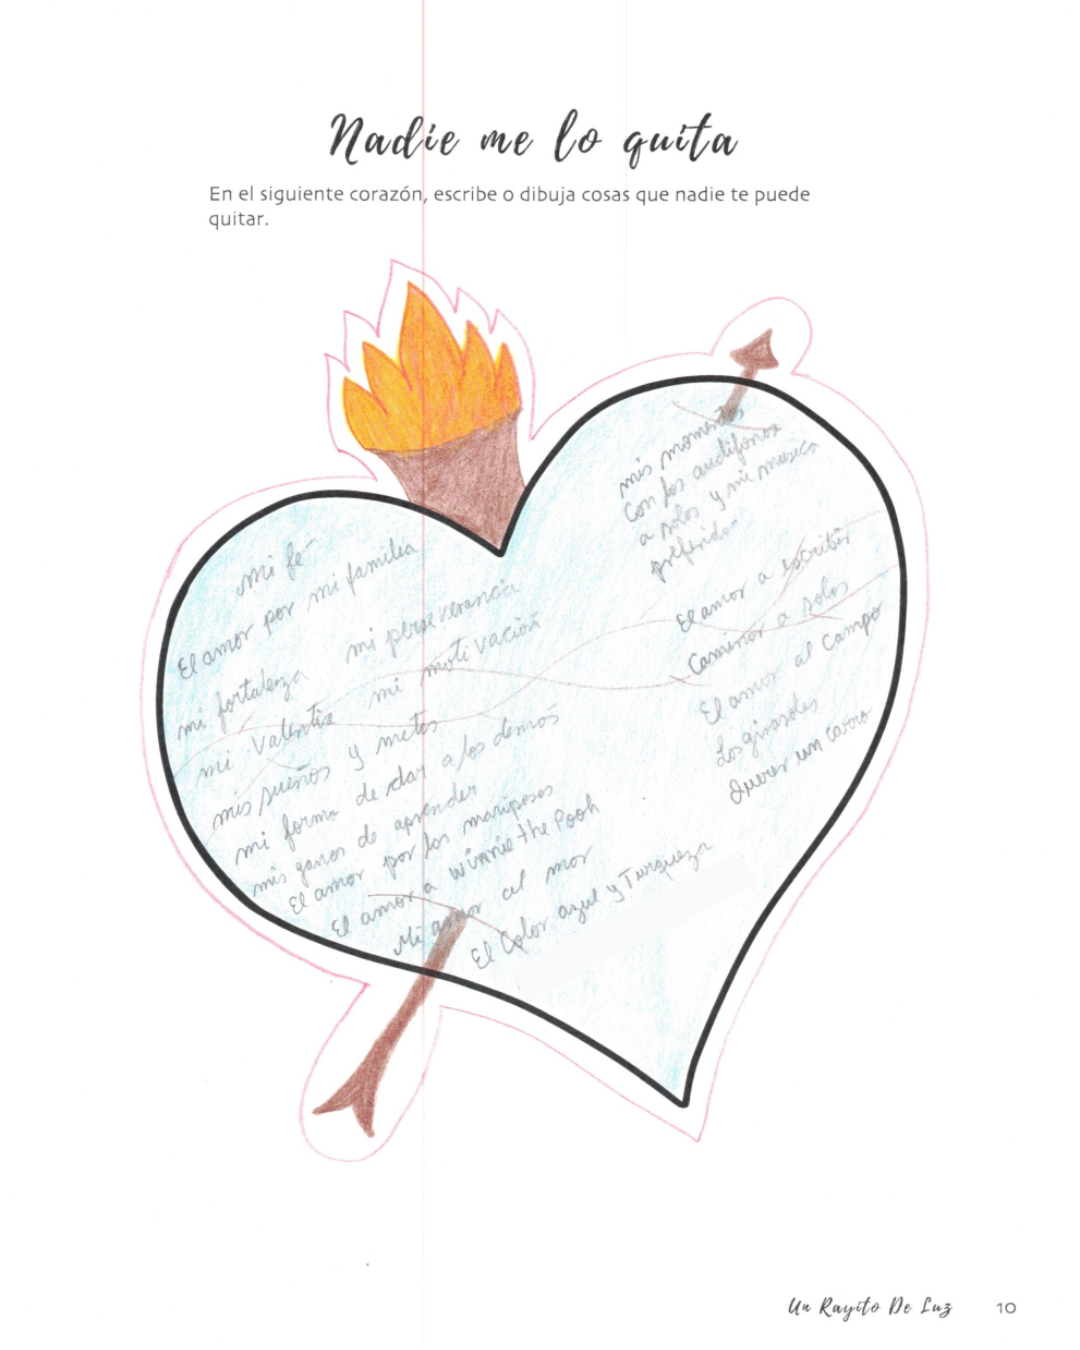 Nadie me lo quita
En el siguiente corazón, escribe o dibuja cosas que nadie te puede
quitar.
mi fé
El amor por mi familia
mi fortaleza
mi perseverancia
mi valentia
mi motivación
mis sueños y metas
mi forma de dar a los demás
mis ganas de aprender
El amor por las mariposas
El amor a winnie the Pooh
Mi amor al mar
El Color azul y Turqueza
mis momentos
Con los audifonos
a solas y mi musica
preferida
El amor a escribir
Caminar a solas
El amor al campo
Los girasoles
Querer un carro
Un Rayito De Luz 10